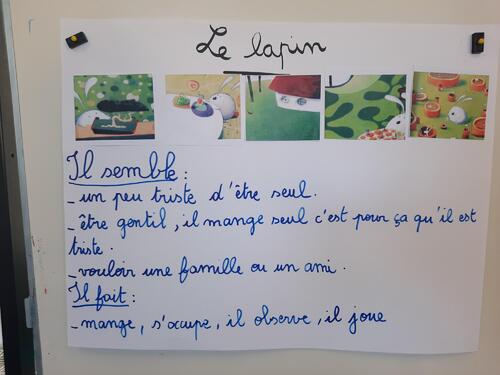 Le lapin
Il semble :
- un peu triste d'être seul.
- être gentil, il mange seul c'est pour ça qu'il est
triste.
- vouloir une famille ou un ami.
Il fait :
- mange, s'occupe, il observe, il joue